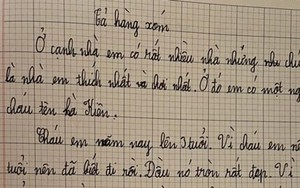 Tả hàng xóm
Ở cạnh nhà em có rất nhiều nhà nhưng nhu chu
là nhà em thích nhất và hơi nhất. Ở đó em có một ng
cháu tên hà Kiên.
Cháu em năm nay lên 3 tuổi. Vì cháu em nă
tuổi nên đã biết đi rồi. Đầu nó tròn rất đẹp. Vì